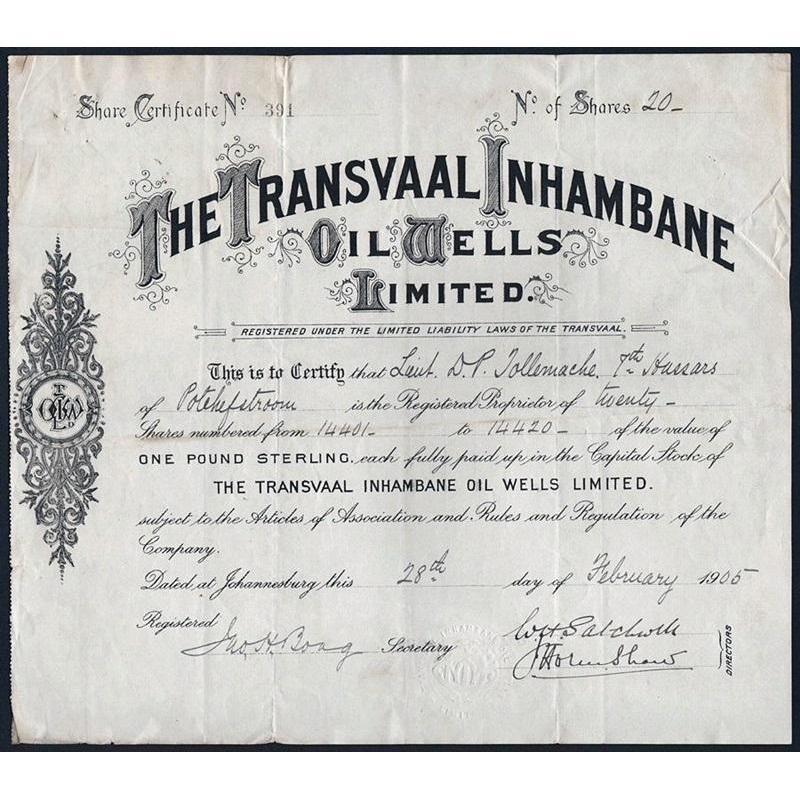 Share Certificate No. 391 No. of Shares 20-
THE TRANSVAAL INHAMBANE
OIL WELLS
LIMITED.
REGISTERED UNDER THE LIMITED LIABILITY LAWS OF THE TRANSVAAL.
This is to Certify that Lieut. D. P. Tollemache. 7th Hussars
of Potchefstroom is the Registered Proprietor of twenty-
Shares numbered from 14401- to 14420- of the value of
ONE POUND STERLING, each fully paid up in the Capital Stock of
THE TRANSVAAL INHAMBANE OIL WELLS LIMITED.
subject to the Articles of Association and Rules and Regulation of the
Company.
Dated at Johannesburg this 28th day of February 1905
Registered
Jno. H. Boag Secretary
DIRECTORS